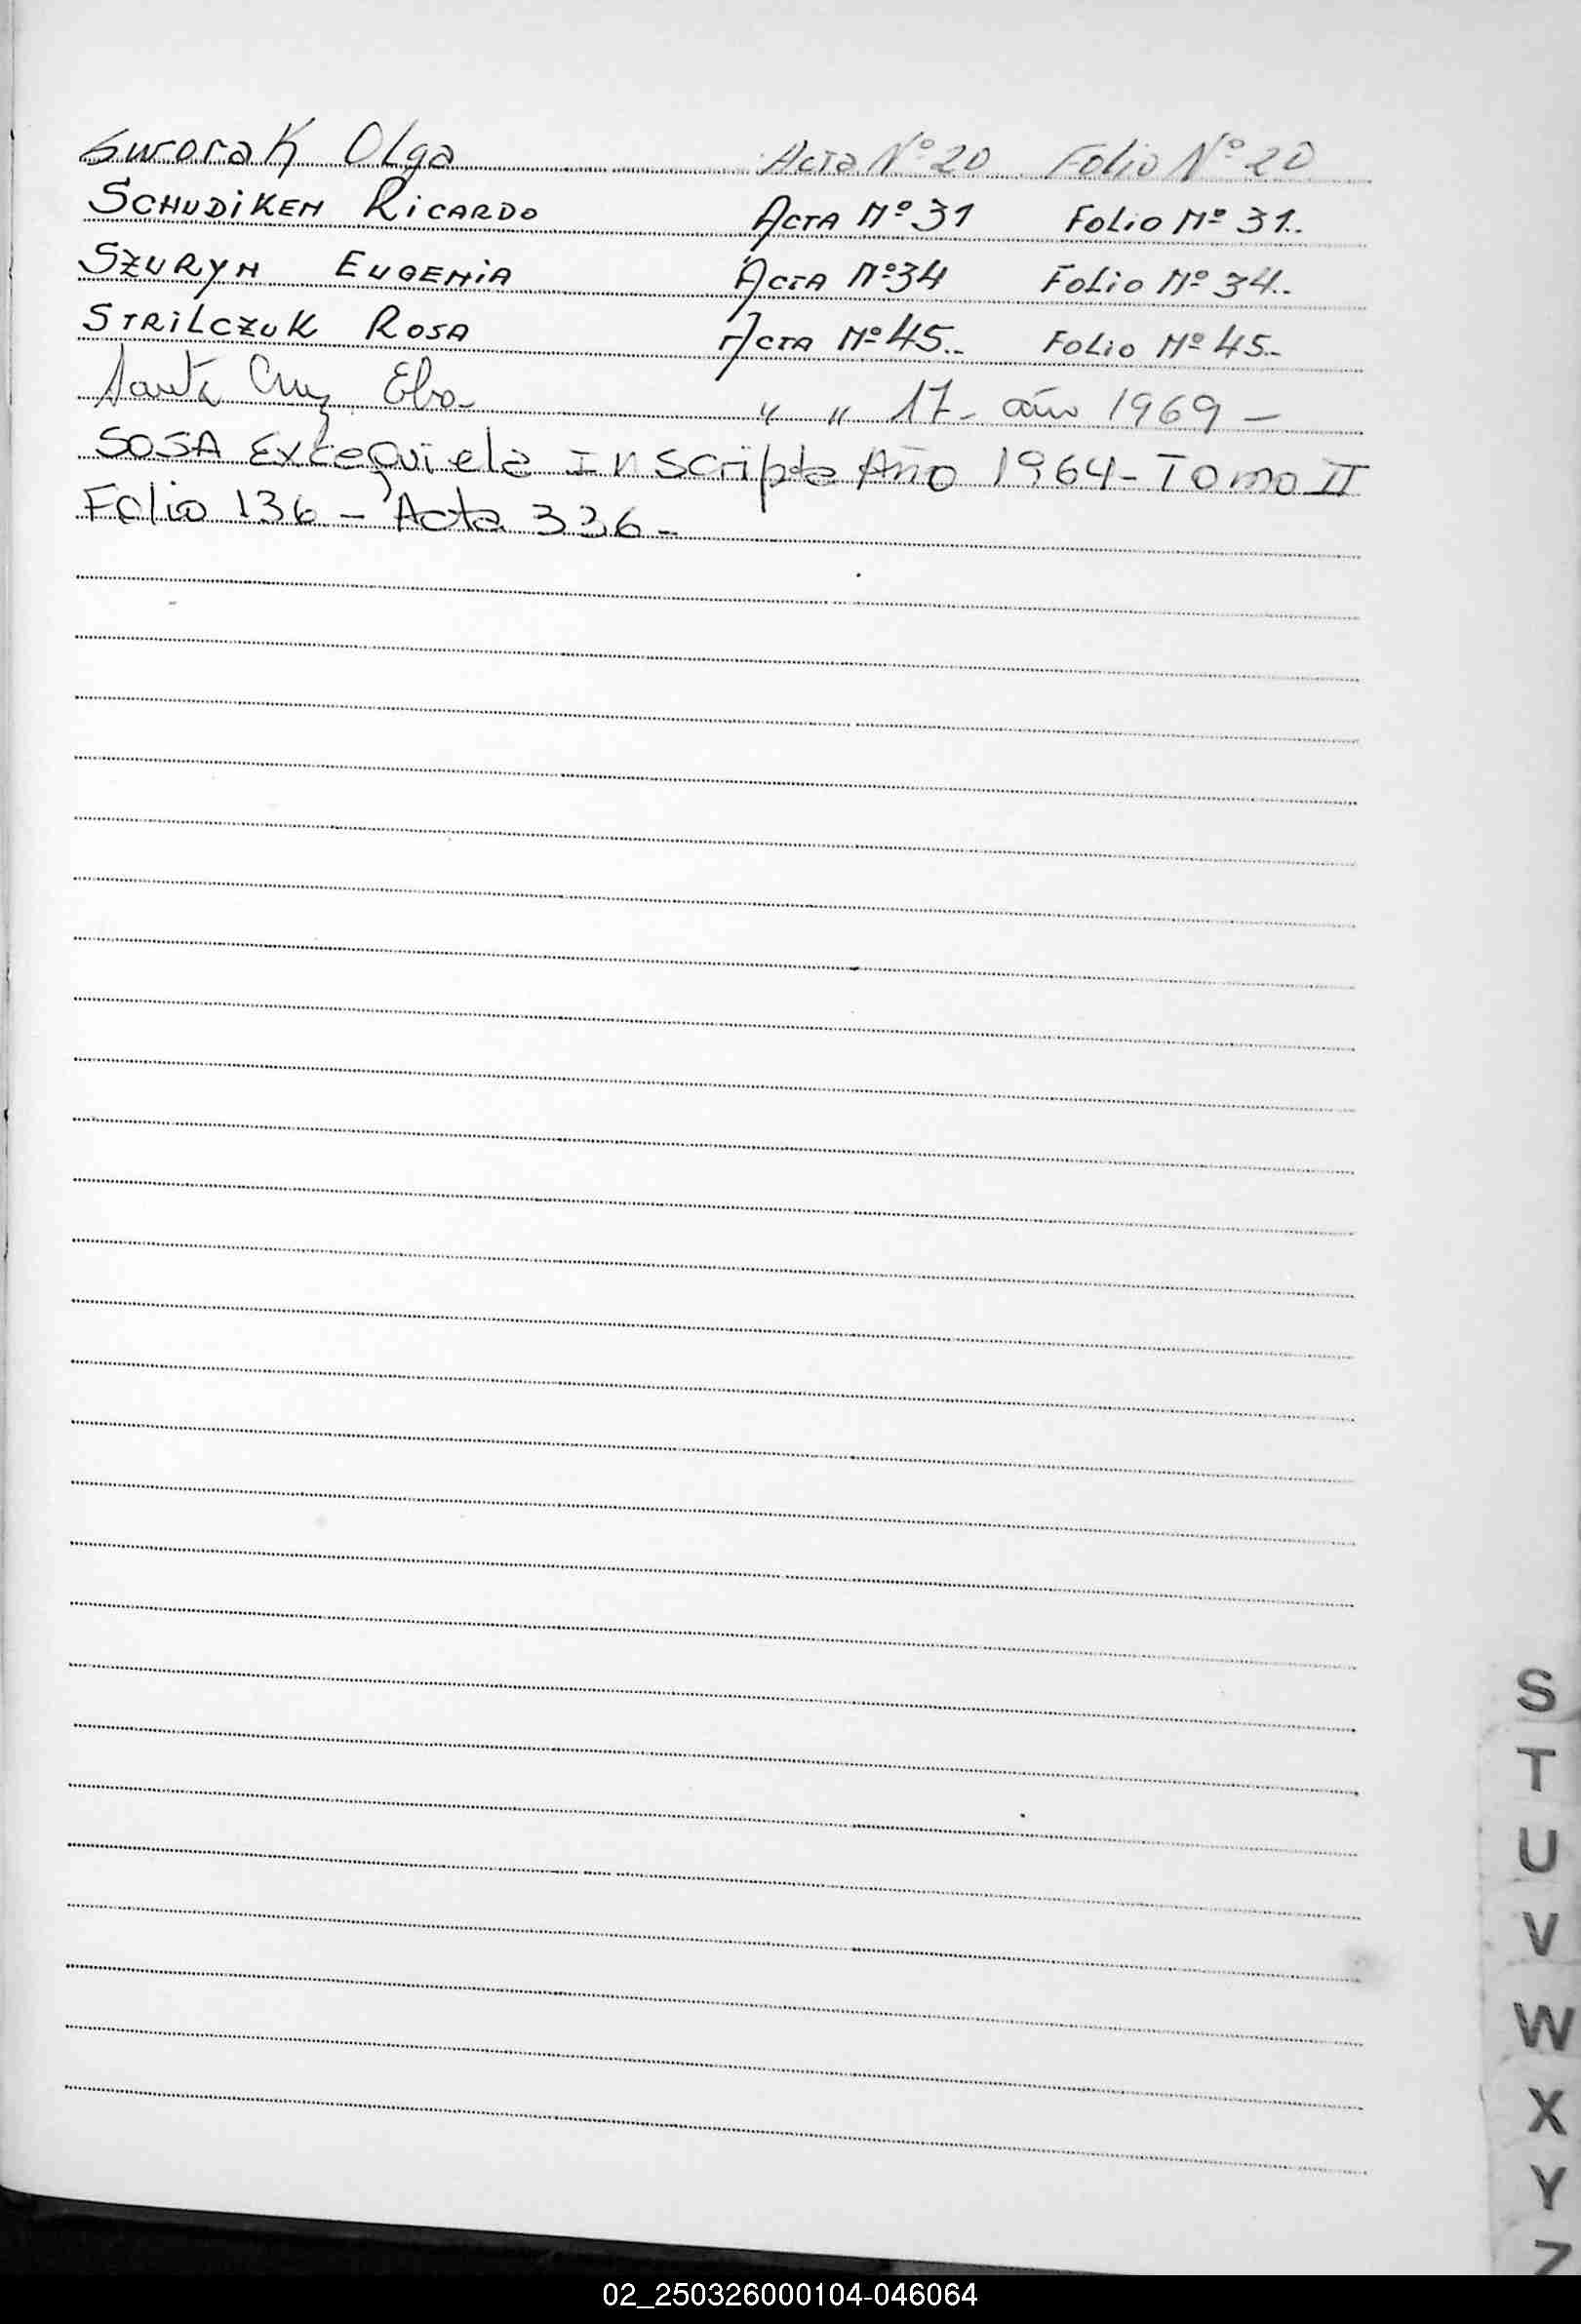 Sworak Olga Acta Nº 20 Folio Nº 20
SCHUDIKEN RICARDO ACTA Nº 31 FOLIO Nº 31..
SZURYN EUGENIA ACTA Nº 34 FOLIO Nº 34..
STRILCZUK ROSA ACTA Nº 45.. FOLIO Nº 45..
Santa Cruz " " 17- año 1969 -
SOSA Excequiela Inscripta Año 1964- Tomo II
Folio 136 - Acta 336 -
S
T
U
V
W
X
Y
Z
02_250326000104-046064